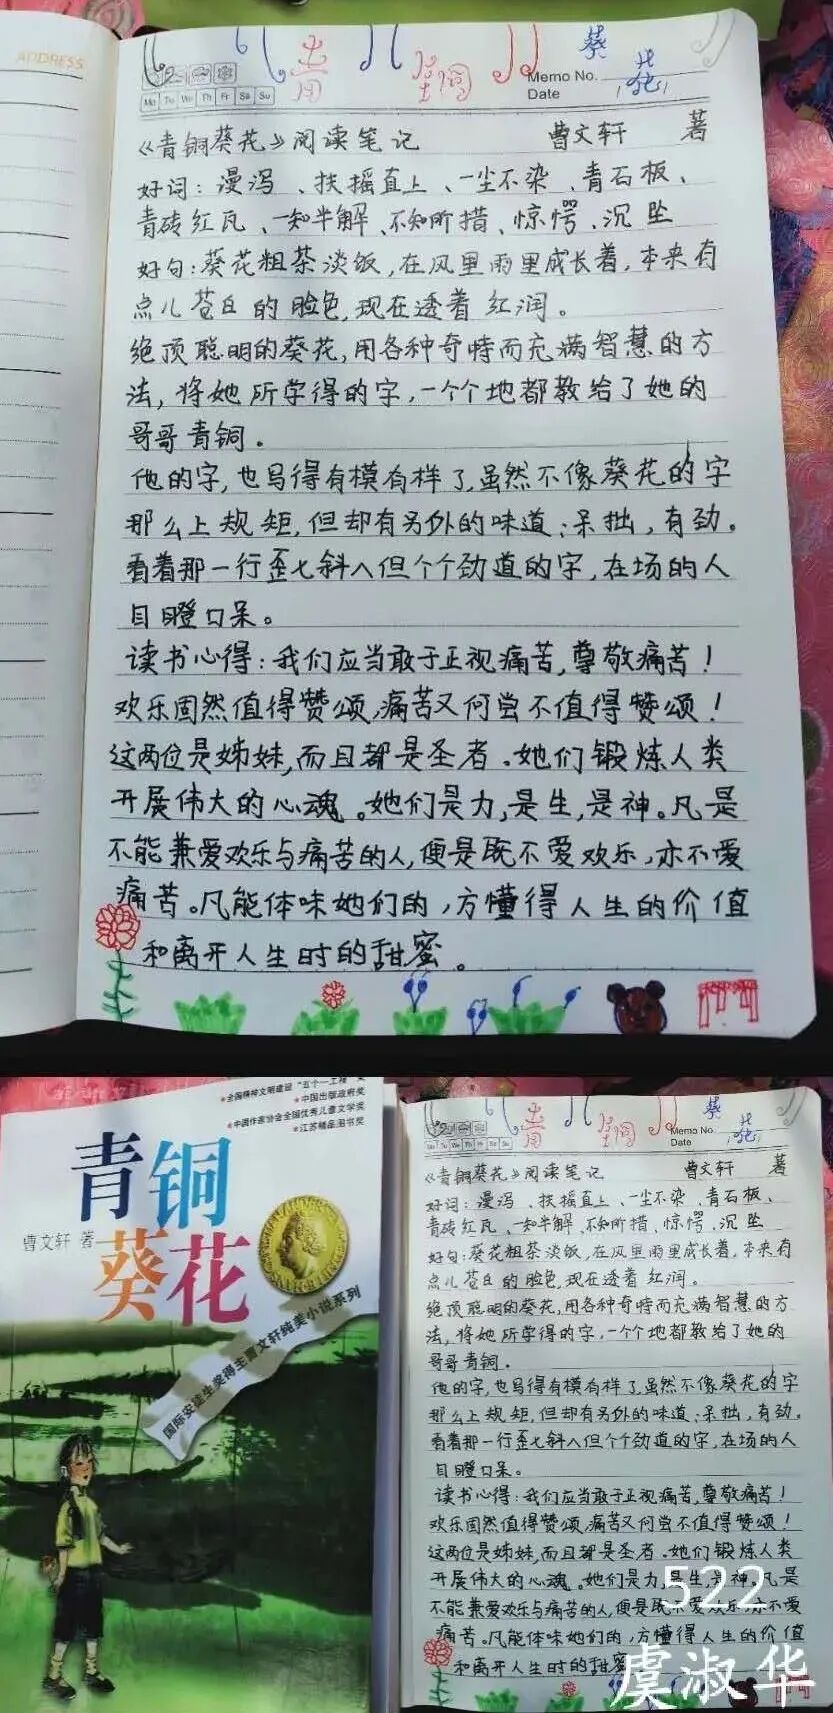 ADDRESS
青铜
葵花
Memo No.
Date
Mo Tu We Th Fr Sa Su
《青铜葵花》阅读笔记 曹文轩 著
好词：漫泻、扶摇直上、一尘不染、青石板、
青砖红瓦、一知半解、不知所措、惊愕、沉坠
好句：葵花粗茶淡饭，在风里雨里成长着，本来有
点儿苍白的脸色，现在透着红润。
绝顶聪明的葵花，用各种奇特而充满智慧的方
法，将她所学得的字，一个个地都教给了她的
哥哥青铜。
他的字，也写得有模有样了，虽然不像葵花的字
那么上规矩，但却有另外的味道：呆拙，有劲。
看着那一行歪七斜八但个个劲道的字，在场的人
目瞪口呆。
读书心得：我们应当敢于正视痛苦，尊敬痛苦！
欢乐固然值得赞颂，痛苦又何尝不值得赞颂！
这两位是姊妹，而且都是圣者。她们锻炼人类
开展伟大的心魂。她们是力，是生，是神。凡是
不能兼爱欢乐与痛苦的人，便是既不爱欢乐，亦不爱
痛苦。凡能体味她们的，方懂得人生的价值
和离开人生时的甜蜜。
★全国精神文明建设“五个一工程”奖
★中国出版政府奖
★中国作家协会全国优秀儿童文学奖
★江苏精品图书奖
青铜
葵花
曹文轩 著
国际安徒生奖得主曹文轩纯美小说系列
青铜
葵花
Memo No.
Date
Mo Tu We Th Fr Sa Su
《青铜葵花》阅读笔记 曹文轩 著
好词：漫泻、扶摇直上、一尘不染、青石板、
青砖红瓦、一知半解、不知所措、惊愕、沉坠
好句：葵花粗茶淡饭，在风里雨里成长着，本来有
点儿苍白的脸色，现在透着红润。
绝顶聪明的葵花，用各种奇特而充满智慧的方
法，将她所学得的字，一个个地都教给了她的
哥哥青铜。
他的字，也写得有模有样了，虽然不像葵花的字
那么上规矩，但却有另外的味道：呆拙，有劲。
看着那一行歪七斜八但个个劲道的字，在场的人
目瞪口呆。
读书心得：我们应当敢于正视痛苦，尊敬痛苦！
欢乐固然值得赞颂，痛苦又何尝不值得赞颂！
这两位是姊妹，而且都是圣者。她们锻炼人类
开展伟大的心魂。她们是力，是生，是神。凡是
不能兼爱欢乐与痛苦的人，便是既不爱欢乐，亦不爱
痛苦。凡能体味她们的，方懂得人生的价值
和离开人生时的甜蜜
522
虞淑华